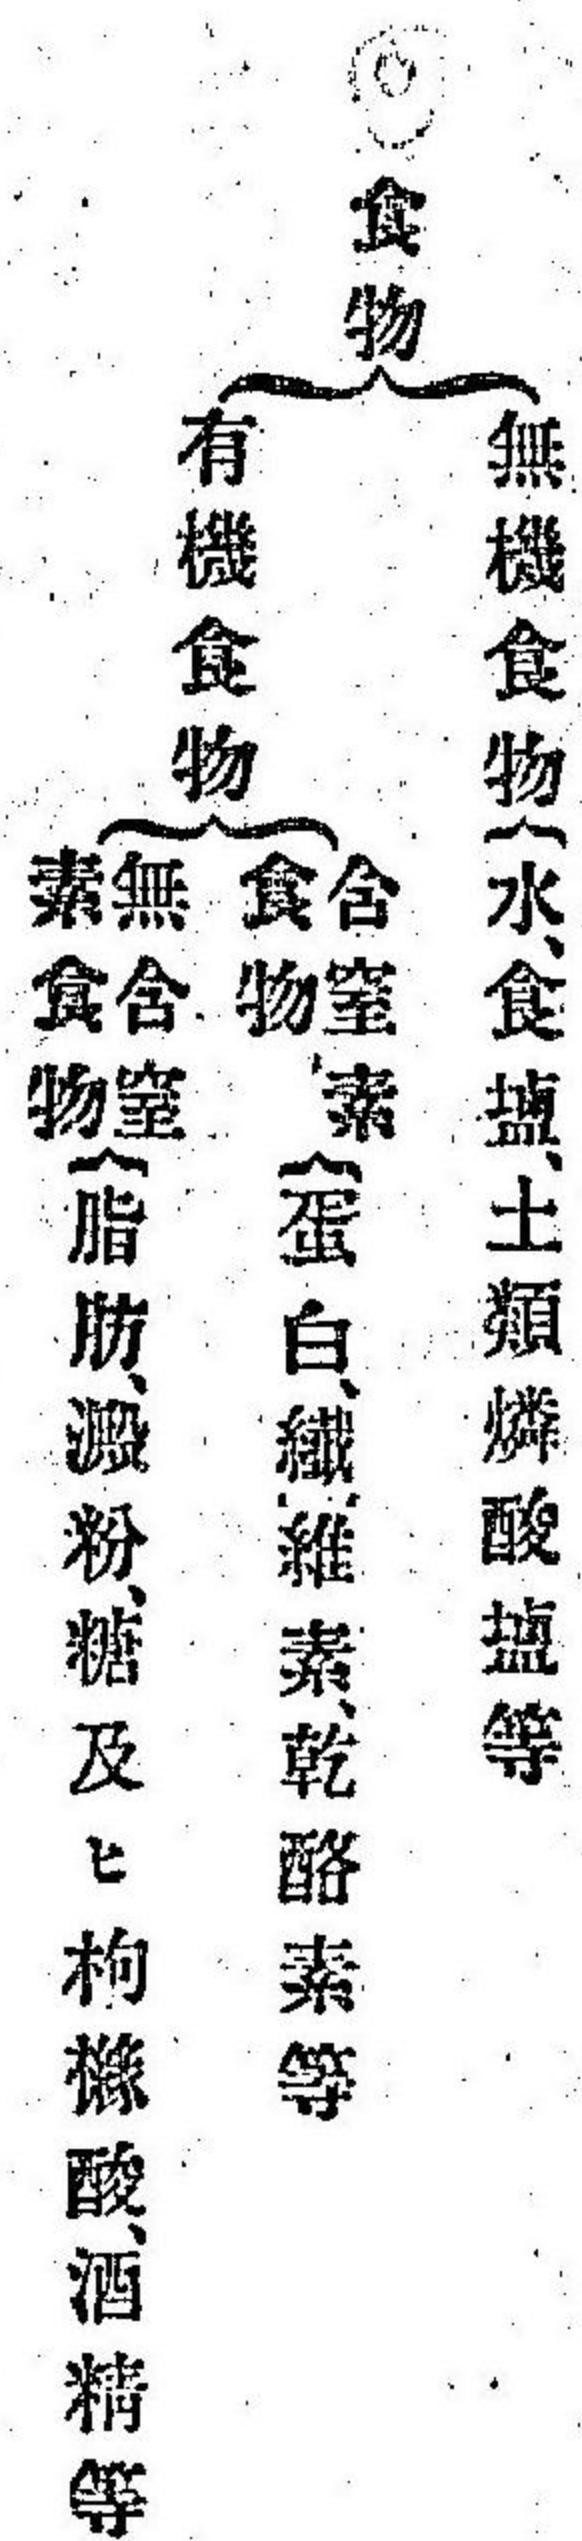 食物
無機食物
水、食塩、土類燐酸塩等
有機食物
含窒素
食物
蛋白、繊維素、乾酪素等
無含窒
素食物
脂肪、澱粉、糖及ヒ枸櫞酸、酒精等